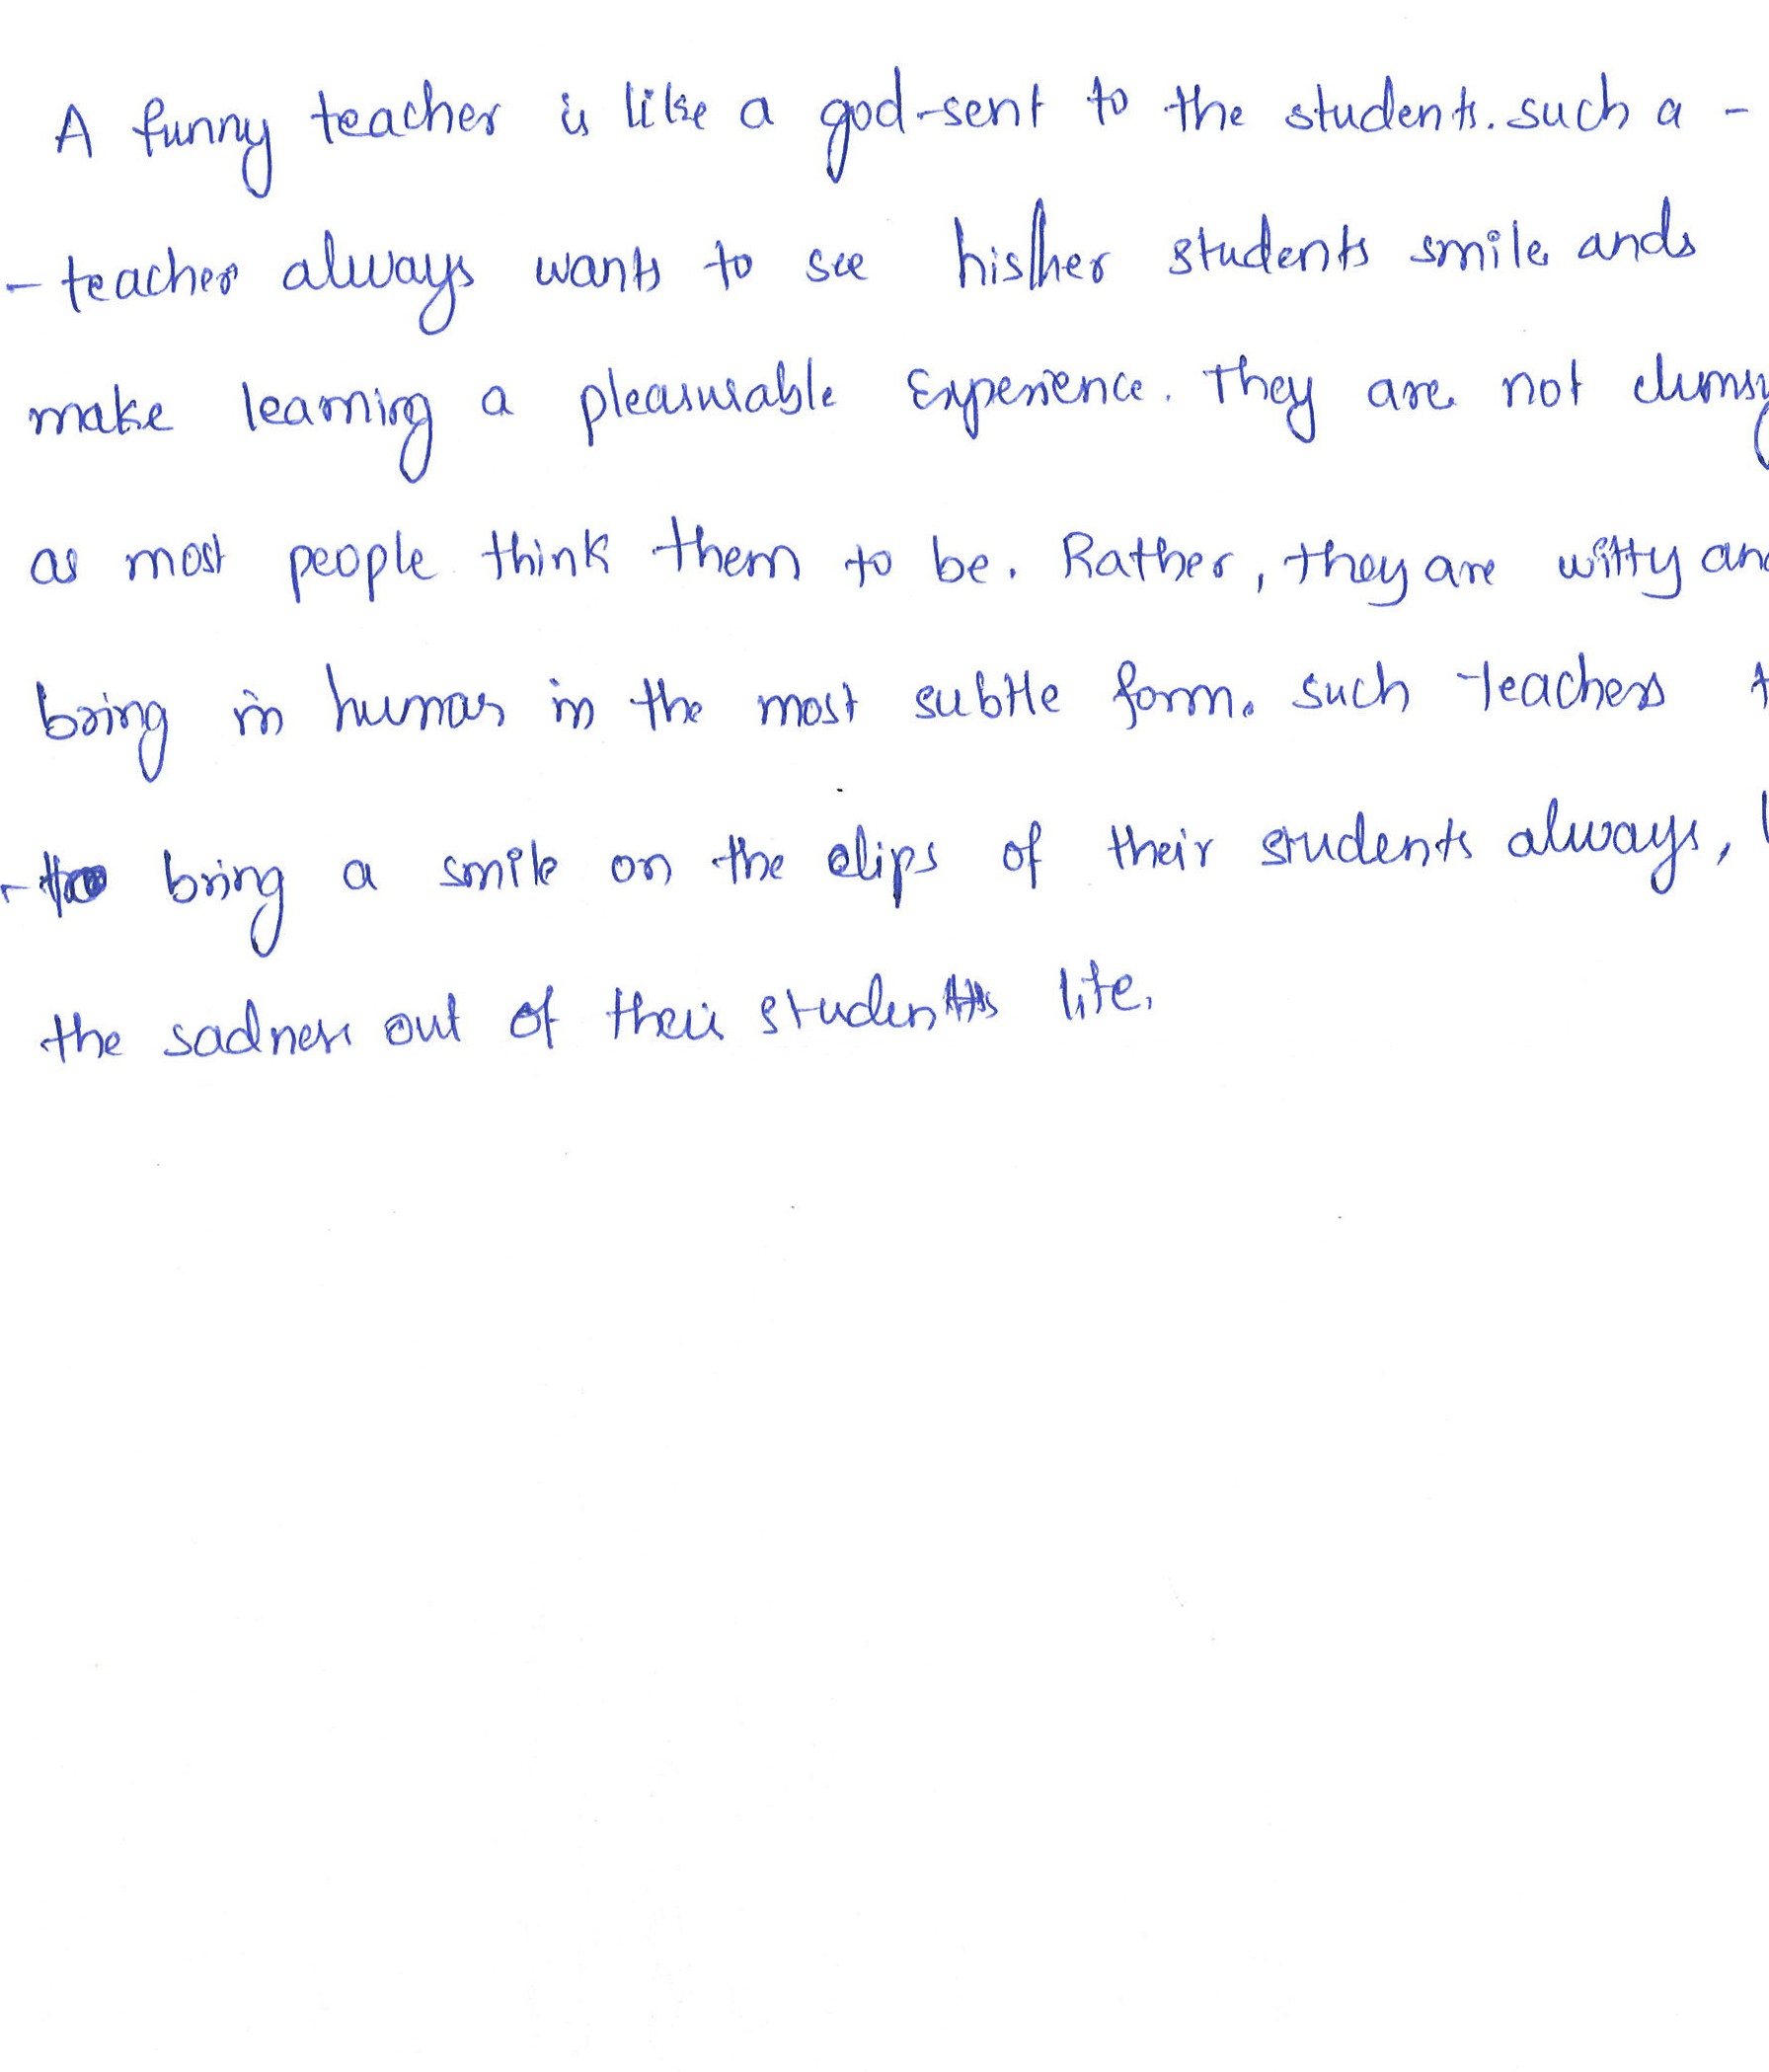 A funny teacher is like a god-sent to the students. such a -
- teacher always wants to see his/her students smile ands
make learning a pleasurable Experience. They are not clumsy
as most people think them to be. Rather, they are witty and
bring in humor in the most subtle form. such teachers
- to bring a smile on the lips of their students always,
the sadness out of their students life.